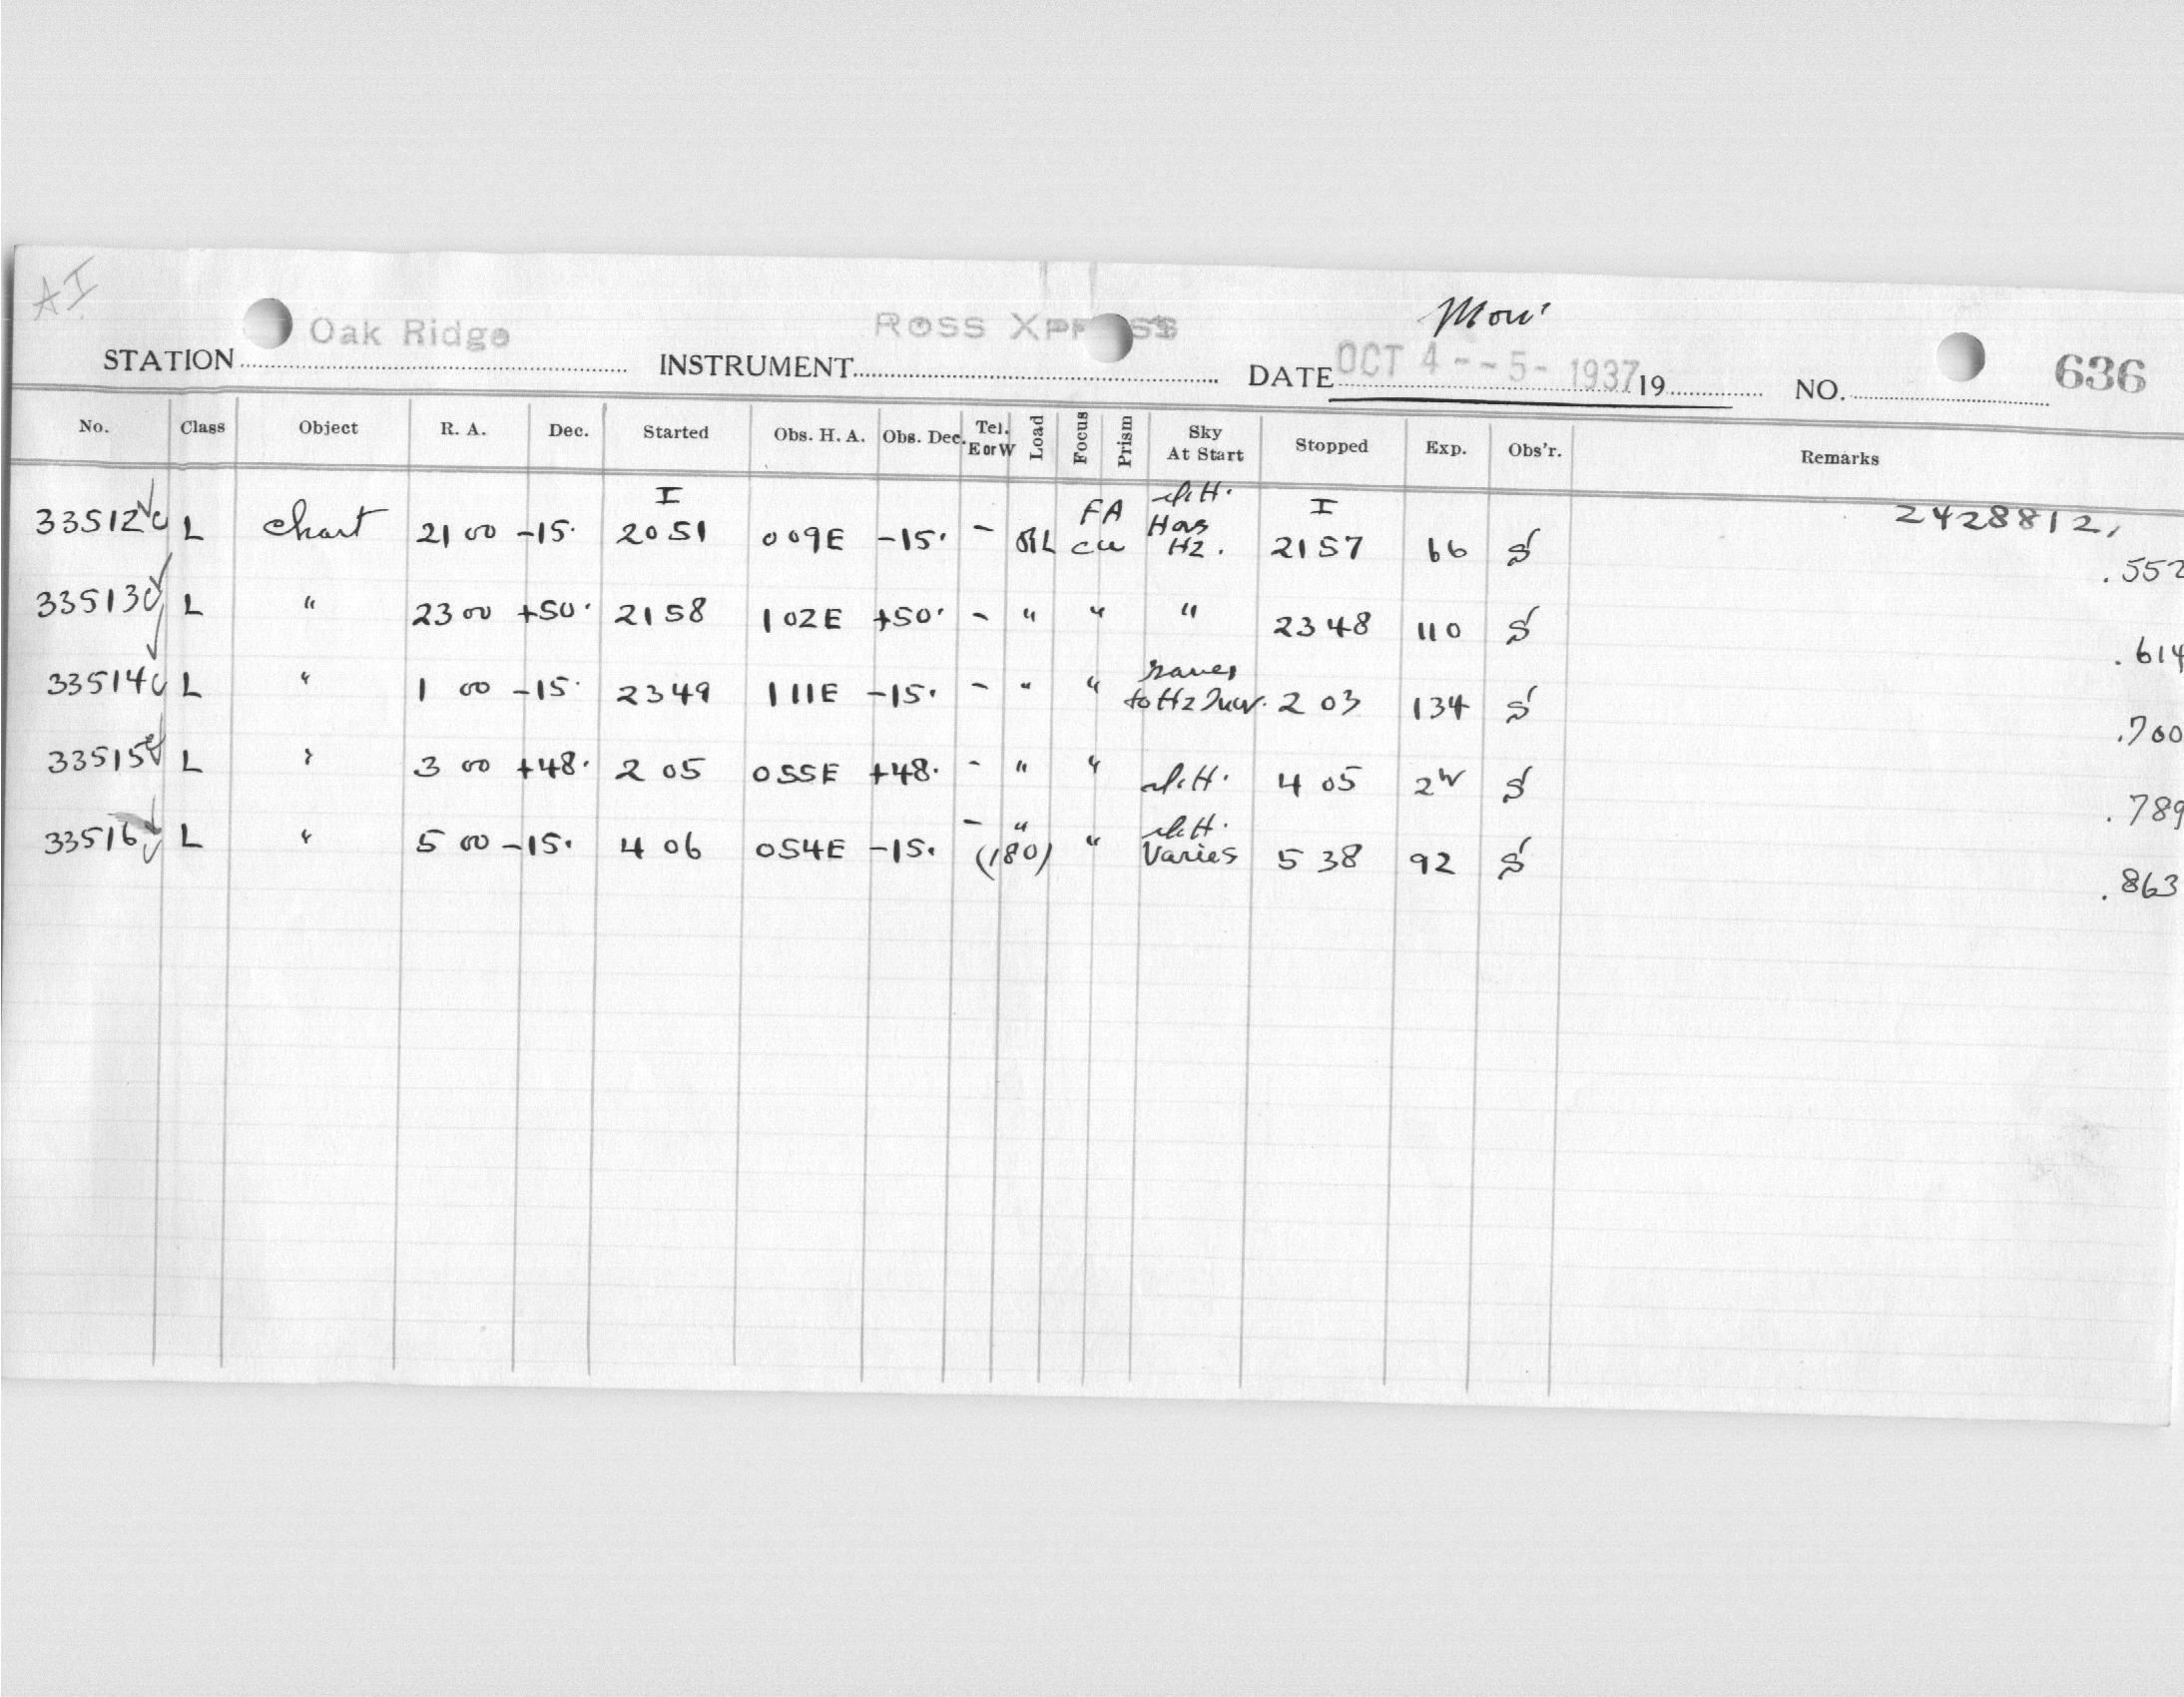 AI
Mon.
STATION Oak Ridge INSTRUMENT Ross Xpress DATE OCT 4--5- 1937 19 NO. 636
No. Class Object R. A. Dec. Started Obs. H. A. Obs. Dec. Tel. E or W Load Focus Prism Sky At Start Stopped Exp. Obs'r. Remarks
I I
33512 L Chart 21 00 -15. 2051 009E -15. - FA cu Hz. 2157 66 S 2428812,
.552
33513 L " 23 00 +50. 2158 102E +50. - " " " 2348 110 S .614
33514 L " 1 00 -15. 2349 111E -15. - " " to Hz 2 03 134 S .700
33515 L " 3 00 +48. 2 05 055E +48. - " " 4 05 2 S .789
33516 L " 5 00 -15. 4 06 054E -15. - " (180) " Varies 5 38 92 S .863